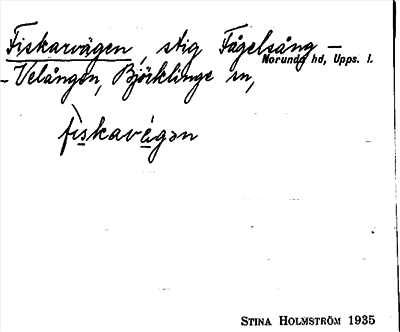 Fiskarvägen, stig Fågelsång –
Norunda hd, Upps. l.
– Velången, Björklinge sn,
fiskavägən
STINA HOLMSTRÖM 1935